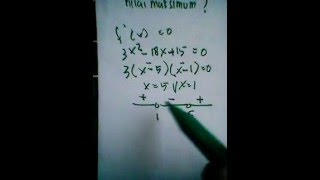 nilai maksimum?
f'(x) = 0
3x² - 18x + 15 = 0
3(x - 5)(x - 1) = 0
x = 5 V x = 1
+ - +
1 5